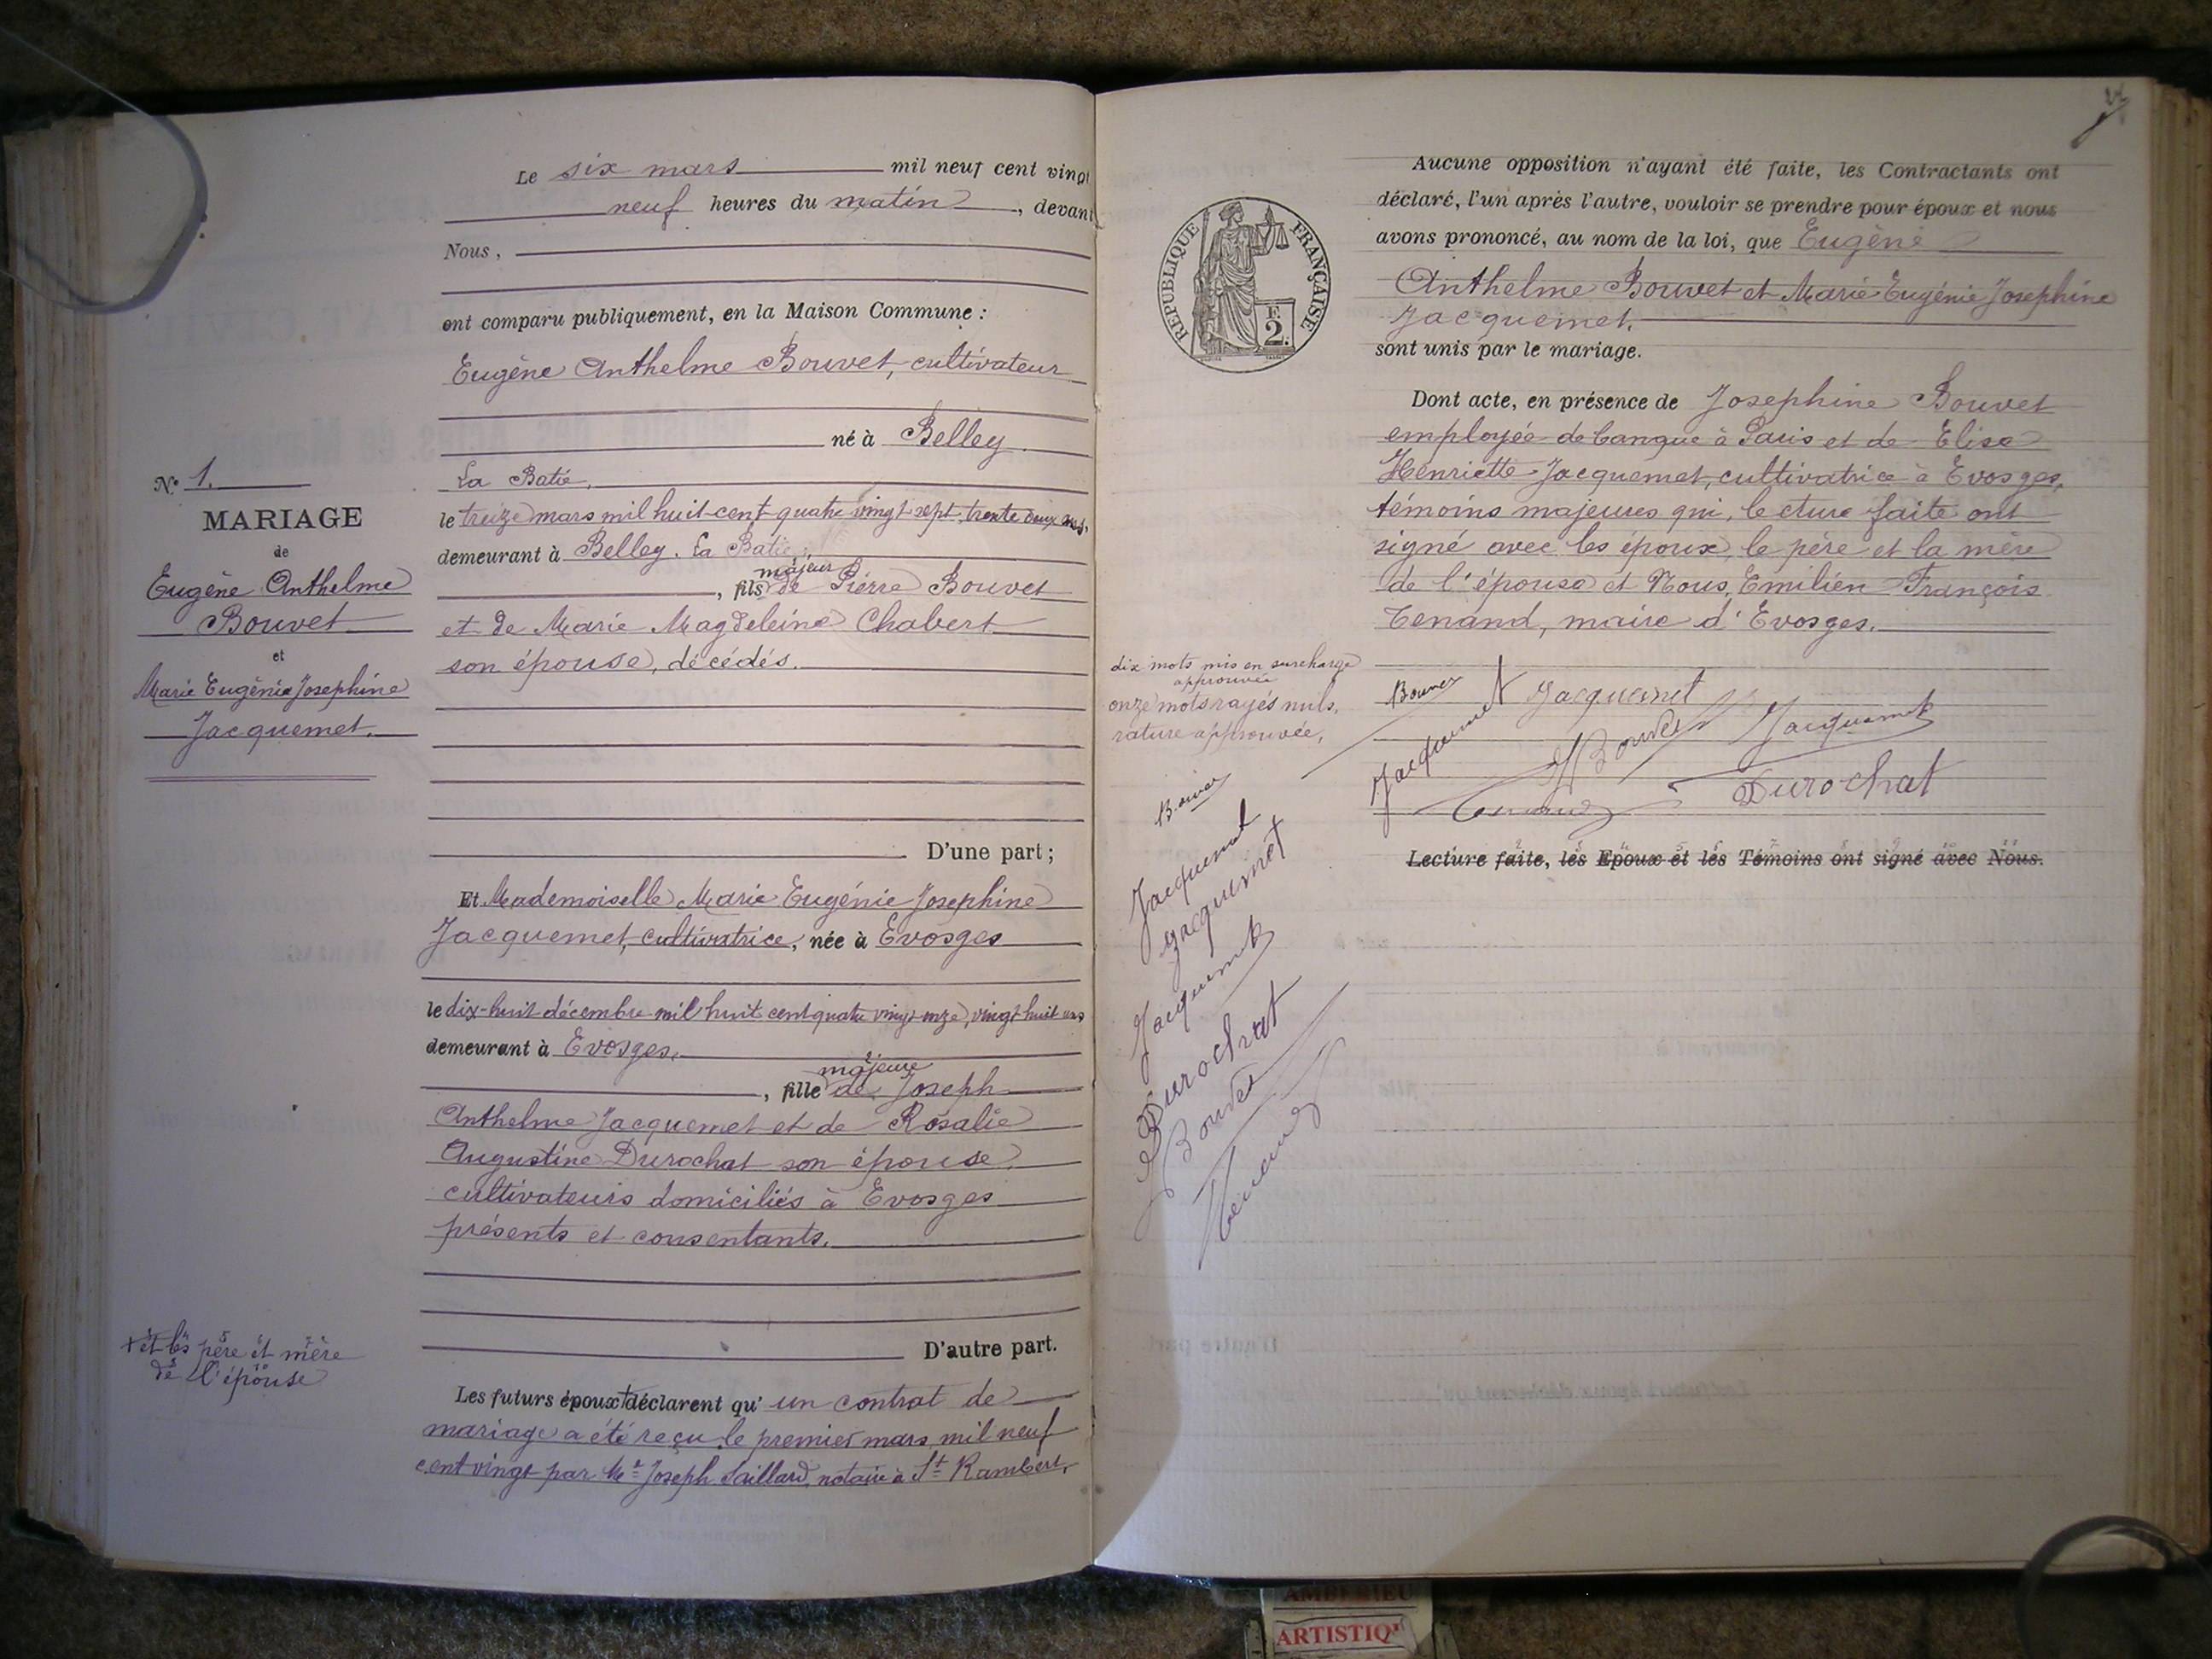 Le six mars mil neuf cent vingt
neuf heures du matin, devant
Nous,
ont comparu publiquement, en la Maison Commune :
Eugène Anthelme Bouvet, cultivateur
né à Belley.
La Batie.
le treize mars mil huit cent quatre vingt sept, trente deux ans,
demeurant à Belley. La Batie,
majeur
, fils de Pierre Bouvet
et de Marie Magdeleine Chabert
son épouse, décédés.
D'une part ;
N° 1.
MARIAGE
de
Eugène Anthelme
Bouvet
et
Marie Eugénie Josephine
Jacquemet.
Et Mademoiselle Marie Eugénie Josephine
Jacquemet, cultivatrice, née à Evosges
le dix-huit décembre mil huit cent quatre vingt onze, vingt huit ans
demeurant à Evosges.
majeure
, fille de Joseph
Anthelme Jacquemet et de Rosalie
Augustine Durochat son épouse,
cultivateurs domiciliés à Evosges
présents et consentants.
D'autre part.
+ et les père et mère
de l'épouse
Les futurs époux + déclarent qu' un contrat de
mariage a été reçu le premier mars mil neuf
cent vingt par Me Joseph Saillard, notaire à St Rambert.
Aucune opposition n'ayant été faite, les Contractants ont
déclaré, l'un après l'autre, vouloir se prendre pour époux et nous
avons prononcé, au nom de la loi, que Eugène
Anthelme Bouvet et Marie Eugénie Josephine
Jacquemet.
sont unis par le mariage.
REPUBLIQUE FRANÇAISE
F.
2.
Dont acte, en présence de Josephine Bouvet
employée de banque à Paris et de Elisa
Henriette Jacquemet, cultivatrice à Evosges,
témoins majeures qui, lecture faite ont
signé avec les époux, le père et la mère
de l'épouse et Nous, Emilien François
Tenand, maire d'Evosges.
dix mots mis en surcharge
approuvée
onze mots rayés nuls,
rature approuvée,
Bouvet
Jacquemet
Jacquemet
J Bouvet
Jacquemet
Tenand
Durochat
Lecture faite, les Epoux et les Témoins ont signé avec Nous.
Bouvet
Jacquemet
Jacquemet
Jacquemet
Durochat
J Bouvet
Tenand
AMBERIEU
ARTISTIQ